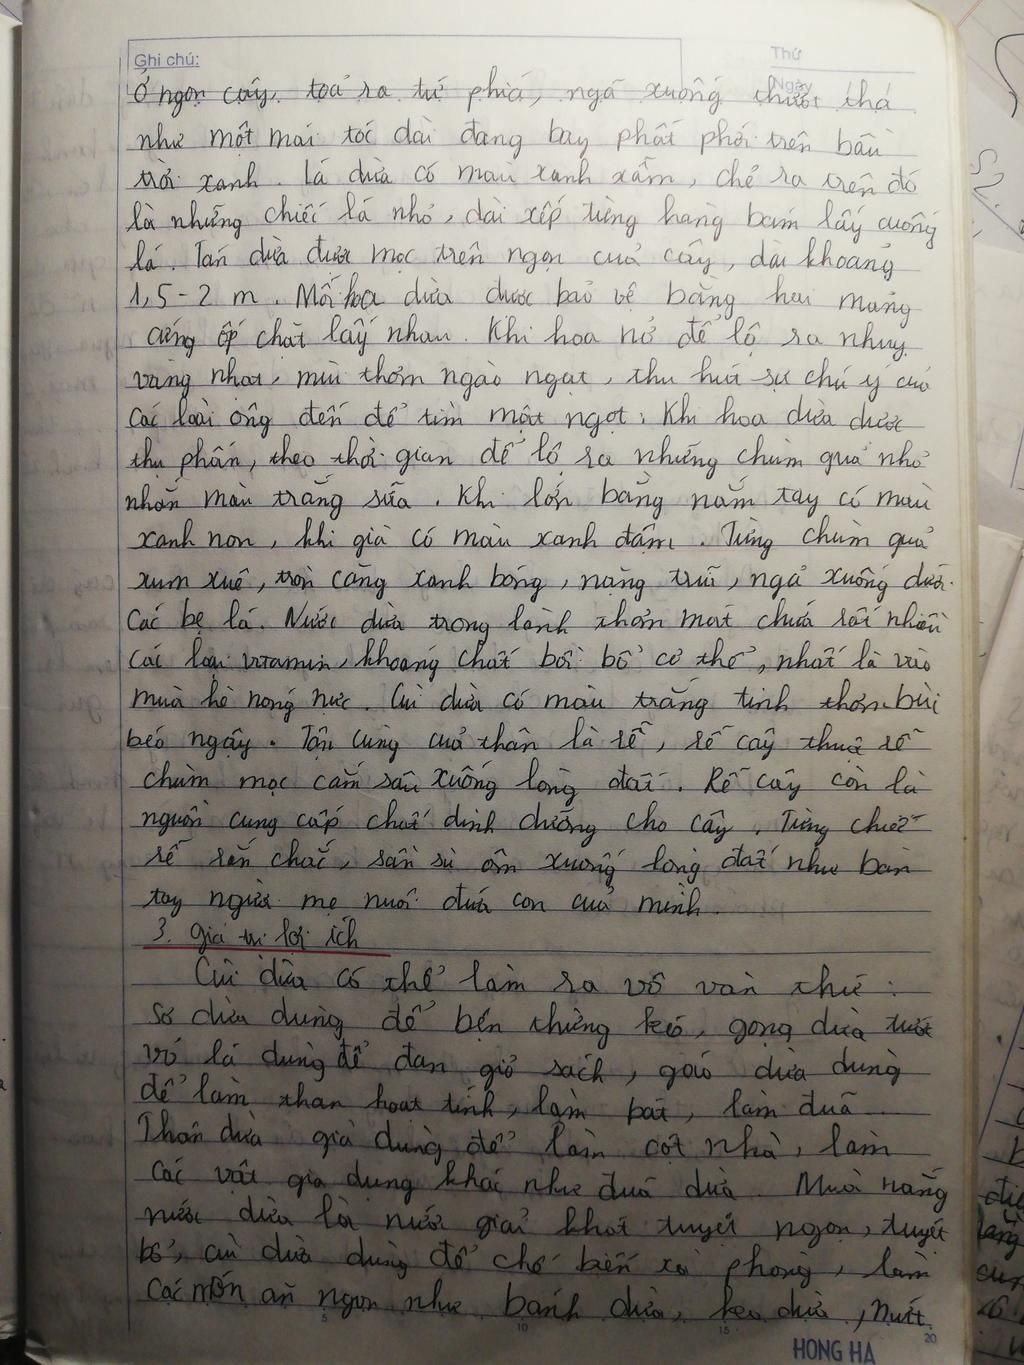 Ghi chú:
Thứ
Ngày
Ở ngọn cây, toả ra tứ phía, ngả xuống thướt tha
như một mái tóc dài đang bay phất phới trên bầu
trời xanh. Lá dừa có màu xanh xẫm, chẻ ra trên đó
là những chiếc lá nhỏ, dài xếp từng hàng bám lấy cuống
lá. Tán dừa được mọc trên ngọn cuả cây, dài khoảng
1,5-2 m. Mỗi hoa dừa được bảo vệ bằng hai mảng
cứng ốp chặt lấy nhau. Khi hoa nở để lộ ra nhụy
vàng nhạt, mùi thơm ngào ngạt, thu hút sự chú ý cuả
các loài ong đến để tìm mật ngọt. Khi hoa dừa được
thụ phấn, theo thời gian để lộ ra những chùm quả nhỏ
nhắn màu trắng sữa. Khi lớn bằng nắm tay có màu
xanh non, khi già có màu xanh đậm. Từng chùm quả
xum xuê, tròn căng xanh bóng, nặng trĩu, ngả xuống dưới
các bẹ lá. Nước dừa trong lành thơm mát chứa rất nhiều
các loại vitamin, khoáng chất bồi bổ cơ thể, nhất là vào
mùa hè nóng nực. Cùi dừa có màu trắng tinh thơm bùi
béo ngậy. Tận cùng cuả thân là rễ, rễ cây thuộc rễ
chùm mọc cắm sâu xuống lòng đất. Rễ cây còn là
nguồn cung cấp chất dinh dưỡng cho cây. Từng chiếc
rễ rắn chắc, sần sùi ôm xuống lòng đất như bàn
tay người mẹ nuôi đứa con cuả mình.
3. Giá trị lợi ích
Cùi dừa có thể làm ra vô vàn thứ:
Sơ dừa dùng để bện thừng kéo, gọng dừa tước
vỏ lá dùng để đan giỏ sách, gáo dừa dùng
để làm than hoạt tính, làm bát, làm đũa
Thân dừa già dùng để làm cột nhà, làm
các vật gia dụng khác như đũa dừa. Mùa nắng
nước dừa là nước giải khát tuyệt ngon, tuyệt
bổ, cùi dừa dùng để chế biến xà phòng, làm
các món ăn ngon như bánh dừa, kẹo dừa, mứt
5
10
15
20
HONG HA